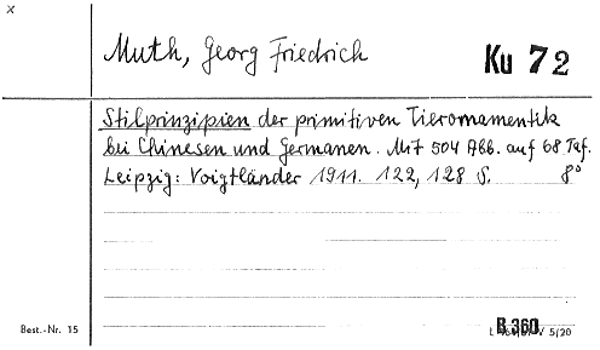 x
Muth, Georg Friedrich
Ku 72
Stilprinzipien der primitiven Tierornamentik
bei Chinesen und Germanen. Mit 504 Abb. auf 68 Taf.
Leipzig: Voigtländer 1911. 122, 128 S. 8°
Best.-Nr. 15
B 360
V 5/20